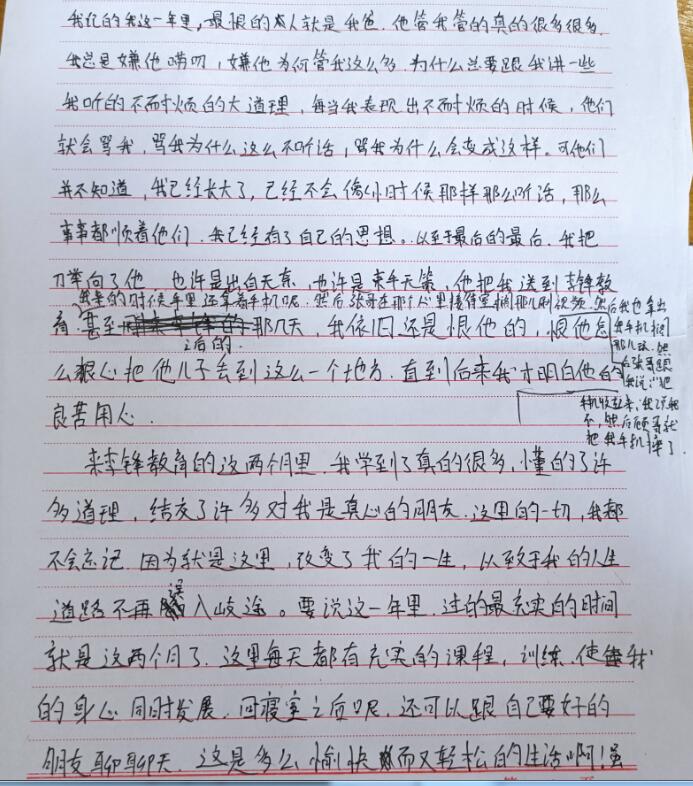 我忆的我这一年里，最恨的本人就是我爸．他管我管的真的很多很多．
我总是嫌他唠叨，嫌他为何管我这么多．为什么总要跟我讲一些
我听的不耐烦的大道理，每当我表现出不耐烦的时候，他们
就会骂我，骂我为什么这么不听话，骂我为什么会变成这样。可他们
并不知道，我已经长大了，已经不会像小时候那样那么听话，那么
事事都顺着他们．我已经有了自己的思想。以至于最后的最后．我把
刀举向了他．也许是出自无奈，也许是束手无策，他把我送到李锋教
我来的时候手里还拿着手机呢．然后张哥在那个心里接待室
然后我也拿出
育．甚至
那几天，我依旧还是恨他的，恨他怎
之后的．
我手机
么狠心把他儿子去到这么一个地方．直到后来我才明白他的
后张哥跟
我说：“把
良苦用心．
手机收起来，我说我
不，然后顾哥就
把我手机拿了
来李锋教育的这两个月里．我学到了真的很多，懂的了许
多道理，结交了许多对我是真心的朋友．这里的一切，我都
不会忘记．因为就是这里，改变了我的一生，以致于我的人生
道路不再误入歧途。要说这一年里．过的最充实的时间
就是这两个月了．这里每天都有充实的课程，训练．使我
的身心同时发展．回寝室之后呢．还可以跟自己要好的
朋友聊聊天．这是多么愉快而又轻松的生活啊！虽